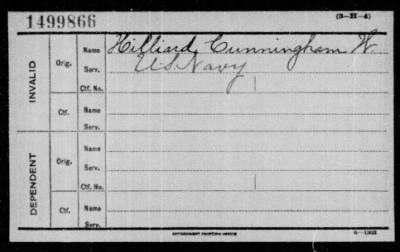 1499866
(3-H-4)
INVALID
Orig.
Name Hilliard, Cunningham W.
Serv. U.S. Navy
Ctf. No.
Ctf.
Name
Serv.
DEPENDENT
Orig.
Name
Serv.
Ctf. No.
Ctf.
Name
Serv.
GOVERNMENT PRINTING OFFICE